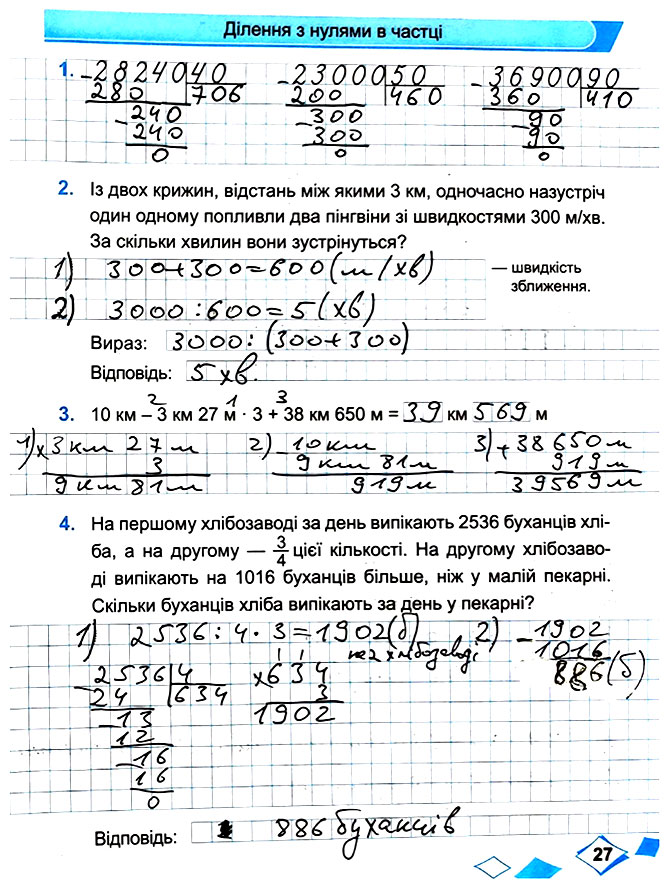 Ділення з нулями в частці
1. -28240|40 -23000|50 -36900|90
280 706 200 460 360 410
-240 -300 -90
240 300 90
0 0 0
2. Із двох крижин, відстань між якими 3 км, одночасно назустріч
один одному попливли два пінгвіни зі швидкостями 300 м/хв.
За скільки хвилин вони зустрінуться?
1) 300+300=600(м/хв) — швидкість
зближення.
2) 3000:600=5(хв)
Вираз: 3000:(300+300)
Відповідь: 5 хв.
2 1 3
3. 10 км – 3 км 27 м · 3 + 38 км 650 м = 39 км 569 м
1) х3 км 27 м 2) -10 км 3) +38 650 м
3 9 км 81 м 919 м
9 км 81 м 919 м 39569 м
4. На першому хлібозаводі за день випікають 2536 буханців хлі-
ба, а на другому — 3/4 цієї кількості. На другому хлібозаво-
ді випікають на 1016 буханців більше, ніж у малій пекарні.
Скільки буханців хліба випікають за день у пекарні?
1) 2536:4·3=1902(б) 2) -1902
на 2 хлібозаводі 1016
886(б)
1 1
-2536|4 х634
24 634 3
-13 1902
12
-16
16
0
Відповідь: 886 буханців
27